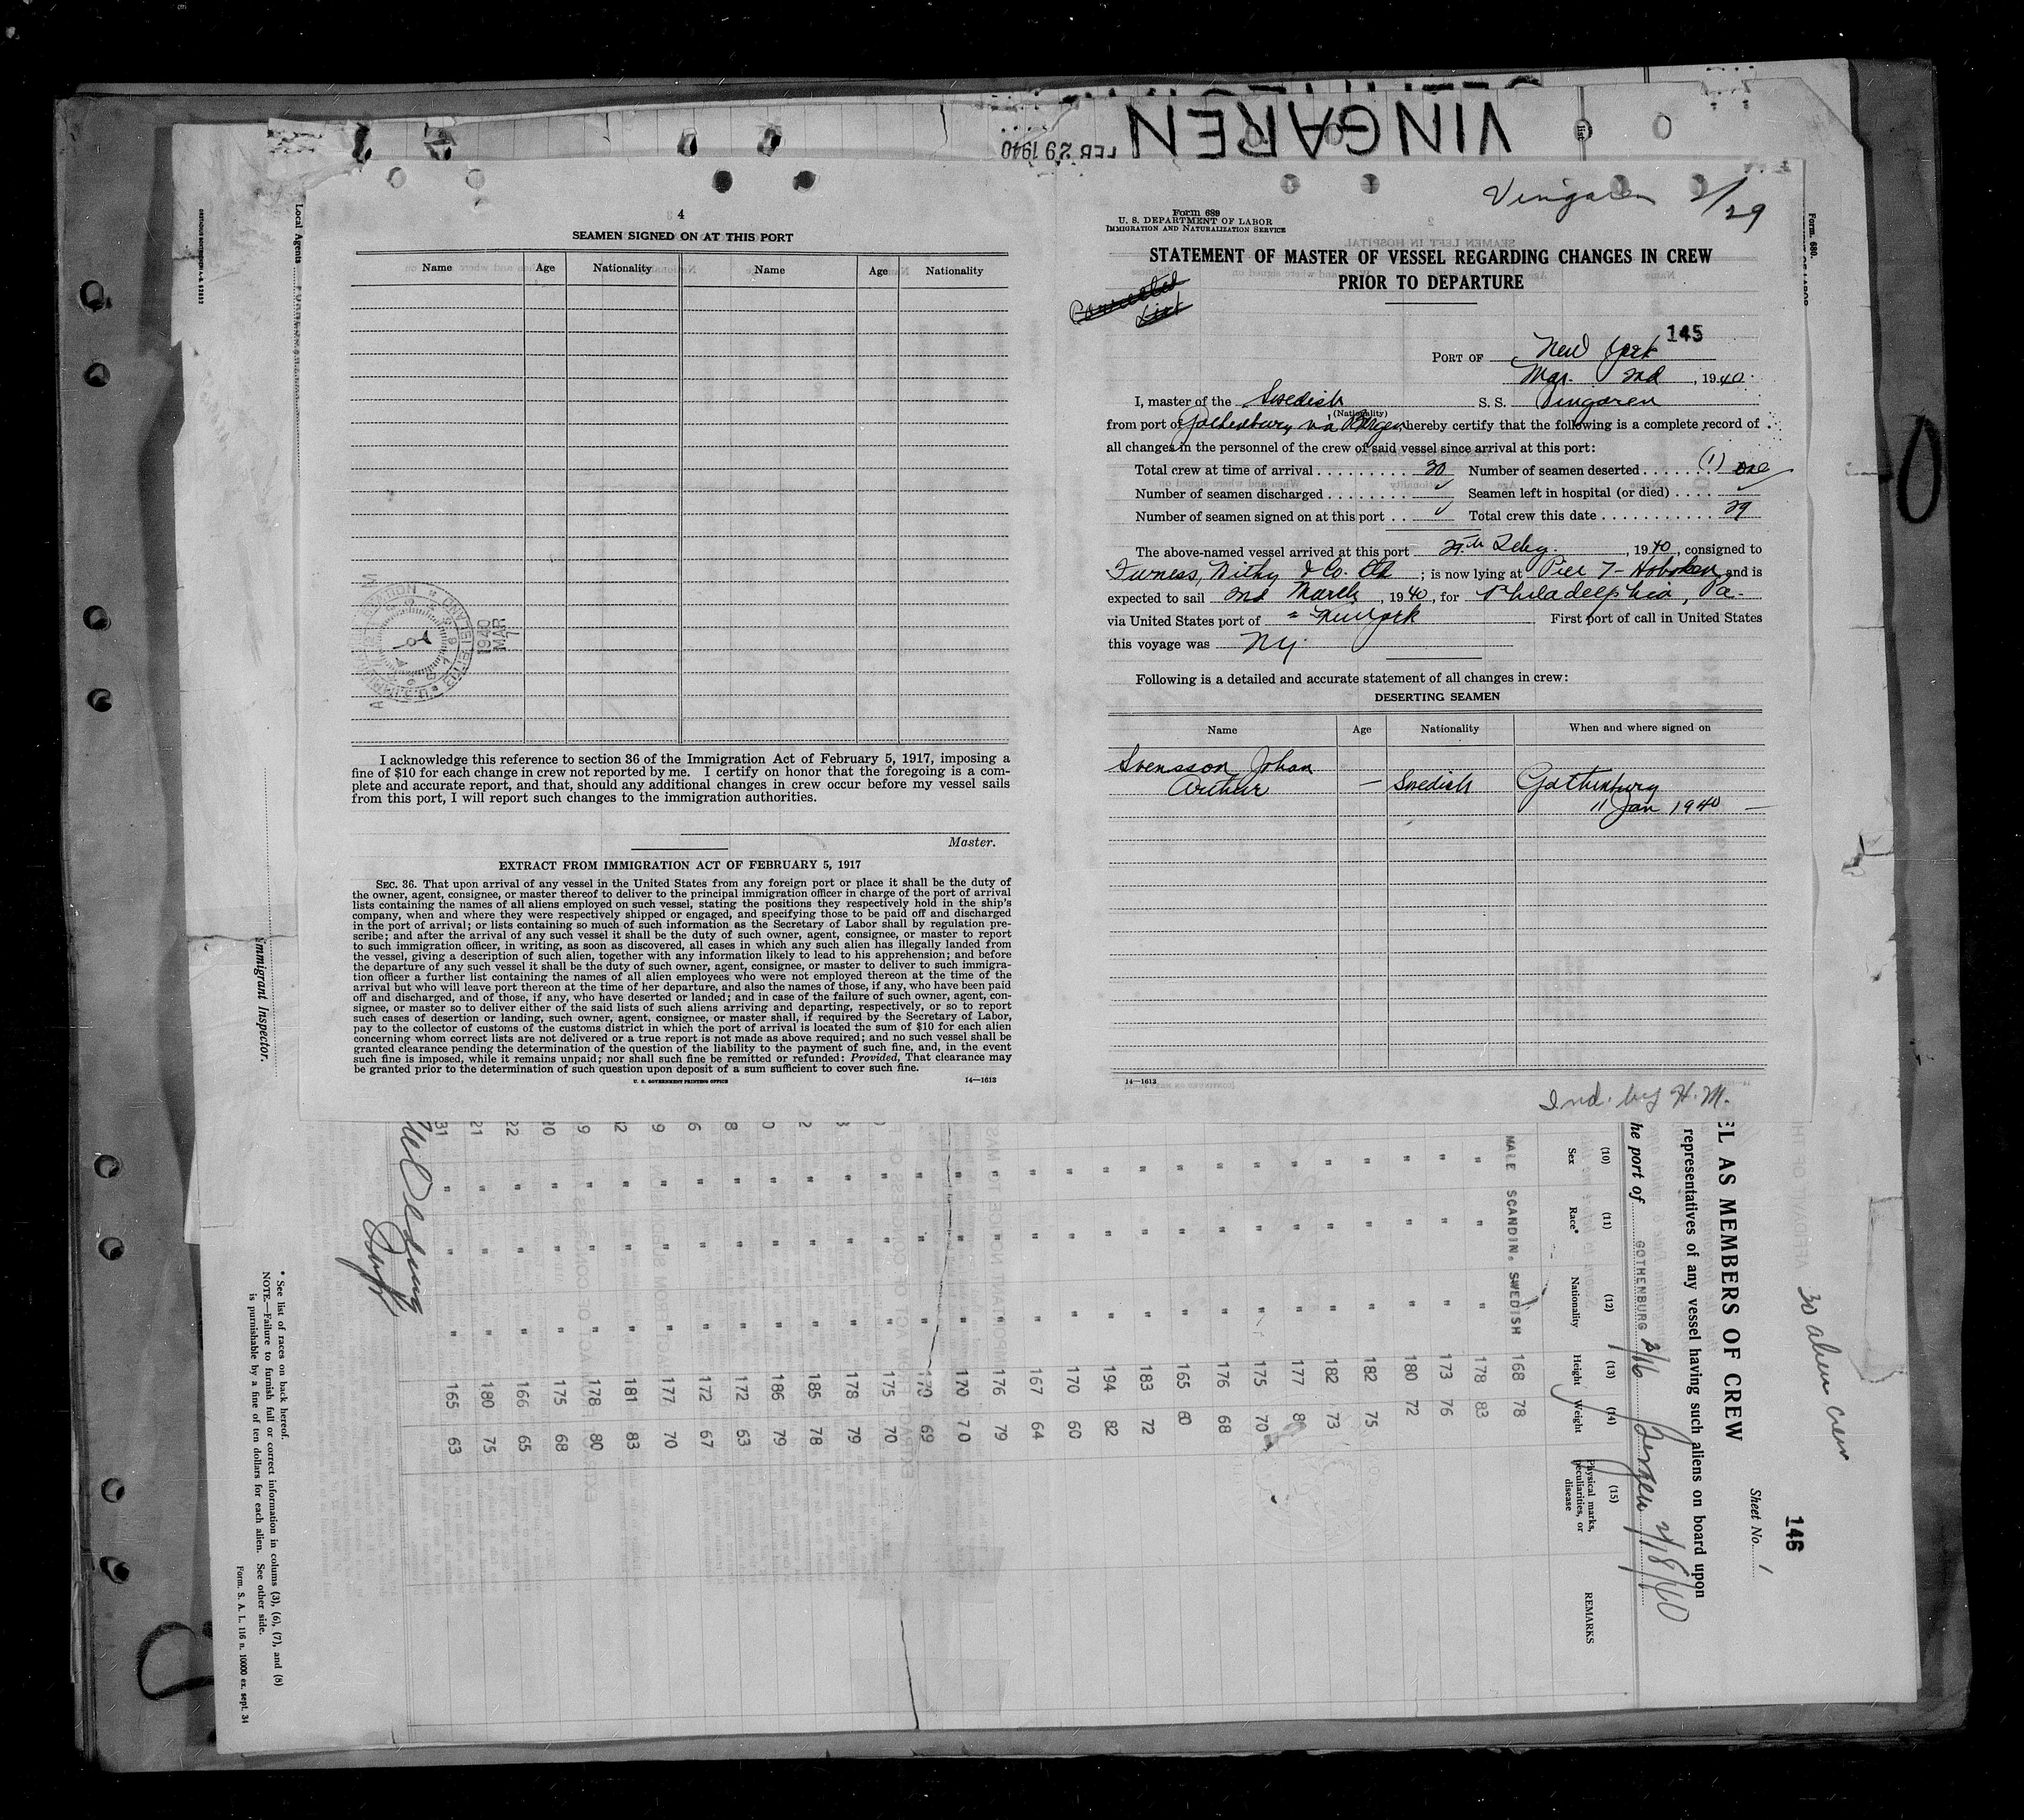 VINGAREN
FEB 29 1940
list
Vingaren 2/29
4
SEAMEN SIGNED ON AT THIS PORT
Name Age Nationality Name Age Nationality
1940
MAR
7
I acknowledge this reference to section 36 of the Immigration Act of February 5, 1917, imposing a
fine of $10 for each change in crew not reported by me. I certify on honor that the foregoing is a com-
plete and accurate report, and that, should any additional changes in crew occur before my vessel sails
from this port, I will report such changes to the immigration authorities.
Master.
EXTRACT FROM IMMIGRATION ACT OF FEBRUARY 5, 1917
SEC. 36. That upon arrival of any vessel in the United States from any foreign port or place it shall be the duty of
the owner, agent, consignee, or master thereof to deliver to the principal immigration officer in charge of the port of arrival
lists containing the names of all aliens employed on such vessel, stating the positions they respectively hold in the ship's
company, when and where they were respectively shipped or engaged, and specifying those to be paid off and discharged
in the port of arrival; or lists containing so much of such information as the Secretary of Labor shall by regulation pre-
scribe; and after the arrival of any such vessel it shall be the duty of such owner, agent, consignee, or master to report
to such immigration officer, in writing, as soon as discovered, all cases in which any such alien has illegally landed from
the vessel, giving a description of such alien, together with any information likely to lead to his apprehension; and before
the departure of any such vessel it shall be the duty of such owner, agent, consignee, or master to deliver to such immigra-
tion officer a further list containing the names of all alien employees who were not employed thereon at the time of the
arrival but who will leave port thereon at the time of her departure, and also the names of those, if any, who have been paid
off and discharged, and of those, if any, who have deserted or landed; and in case of the failure of such owner, agent, con-
signee, or master so to deliver either of the said lists of such aliens arriving and departing, respectively, or so to report
such cases of desertion or landing, such owner, agent, consignee, or master shall, if required by the Secretary of Labor,
pay to the collector of customs of the customs district in which the port of arrival is located the sum of $10 for each alien
concerning whom correct lists are not delivered or a true report is not made as above required; and no such vessel shall be
granted clearance pending the determination of the question of the liability to the payment of such fine, and, in the event
such fine is imposed, while it remains unpaid; nor shall such fine be remitted or refunded: Provided, That clearance may
be granted prior to the determination of such question upon deposit of a sum sufficient to cover such fine.
U. S. GOVERNMENT PRINTING OFFICE 14—1613
Form 689
U. S. DEPARTMENT OF LABOR
IMMIGRATION AND NATURALIZATION SERVICE
STATEMENT OF MASTER OF VESSEL REGARDING CHANGES IN CREW
PRIOR TO DEPARTURE
List
145
PORT OF New York
Mar. 2nd, 1940.
I, master of the Swedish S. S. Vingaren
(Nationality)
from port of Gothenburg via Bergen, hereby certify that the following is a complete record of
all changes in the personnel of the crew of said vessel since arrival at this port:
Total crew at time of arrival 30 Number of seamen deserted (1) one
Number of seamen discharged Seamen left in hospital (or died)
Number of seamen signed on at this port Total crew this date 29
The above-named vessel arrived at this port 29th Feby., 1940, consigned to
Furness, Withy & Co. Ltd; is now lying at Pier 7 - Hoboken and is
expected to sail 2nd March, 1940, for Philadelphia, Pa.
via United States port of = New York First port of call in United States
this voyage was NY.
Following is a detailed and accurate statement of all changes in crew:
DESERTING SEAMEN
Name Age Nationality When and where signed on
Svensson Johan
Arthur — Swedish Gothenburg
11 Jan 1940 —
14—1613
Ind. by H. M.
Local Agents
Immigrant Inspector.
Form 680.
30 alien crew
146
Sheet No. 1
EL AS MEMBERS OF CREW
representatives of any vessel having such aliens on board upon
he port of GOTHENBURG 2/16 Bergen 2/18/40
(10) (11) (12) (13) (14) (15)
Sex Race* Nationality Height Weight Physical marks, peculiarities, or disease REMARKS
MALE SCANDIN. SWEDISH 168 78
" " " 178 83
" " " 173 76
" " " 180 72
" " " 182 75
" " " 182 73
" " " 177 80
" " " 175 70
" " " 176 68
" " " 165 60
" " " 183 72
" " " 194 82
" " " 170 60
" " " 167 64
" " " 176 79
" " " 170 70
" " " 170 69
" " " 175 70
" " " 178 79
" " " 185 78
" " " 186 79
" " " 172 63
" " " 172 67
" " " 177 70
" " " 181 83
" " " 178 80
" " " 175 68
" " " 166 65
" " " 180 75
" " " 165 63
* See list of races on back hereof.
NOTE.—Failure to furnish full or correct information in colums (3), (6), (7), and (8)
is punishable by a fine of ten dollars for each alien. See other side.
Form. S. A. L. 116 n. 10000 ex. sept. 34